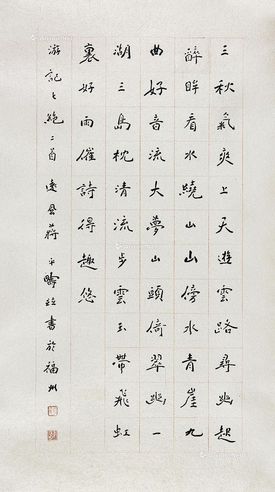 三秋氣爽上天遊雲路尋幽起
醉眸看水繞山山傍水青崖九
曲好音流大夢山頭倚翠幽一
湖三島枕清流步雲玉帶飛虹
裏好雨催詩得趣悠
游記七絶二首 蔣平疇 書於福州